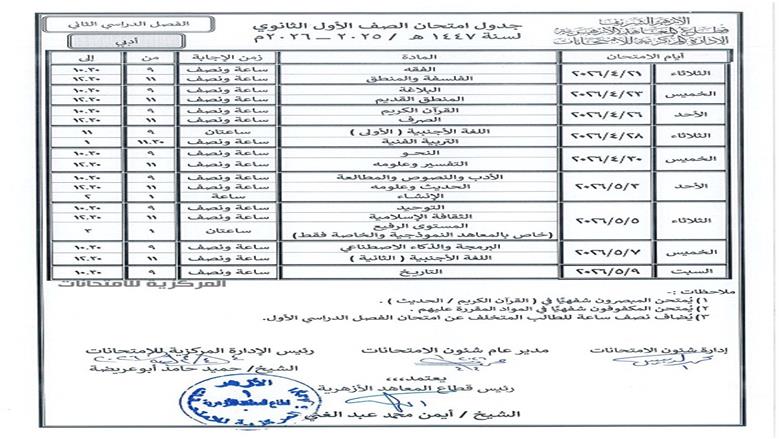 الأزهر الشريف
قطاع المعاهد الأزهرية
الإدارة المركزية للامتحانات
جدول امتحان الصف الأول الثانوي
لسنة ١٤٤٧ هـ / ٢٠٢٥ – ٢٠٢٦م
الفصل الدراسي الثاني
أدبي
أيام الامتحان المادة زمن الإجابة من إلى
الثلاثاء ٢٠٢٦/٤/٢١ الفقه ساعة ونصف ٩ ١٠.٣٠
الفلسفة والمنطق ساعة ونصف ١١ ١٢.٣٠
الخميس ٢٠٢٦/٤/٢٣ البلاغة ساعة ونصف ٩ ١٠.٣٠
المنطق القديم ساعة ونصف ١١ ١٢.٣٠
الأحد ٢٠٢٦/٤/٢٦ القرآن الكريم ساعة ونصف ٩ ١٠.٣٠
الصرف ساعة ونصف ١١ ١٢.٣٠
الثلاثاء ٢٠٢٦/٤/٢٨ اللغة الأجنبية ( الأولى ) ساعتان ٩ ١١
التربية الفنية ساعة ونصف ١١.٣٠ ١
الخميس ٢٠٢٦/٤/٣٠ النحو ساعة ونصف ٩ ١٠.٣٠
التفسير وعلومه ساعة ونصف ١١ ١٢.٣٠
الأحد ٢٠٢٦/٥/٣ الأدب والنصوص والمطالعة ساعة ونصف ٩ ١٠.٣٠
الحديث وعلومه ساعة ونصف ١١ ١٢.٣٠
الإنشاء ساعة ١ ٢
الثلاثاء ٢٠٢٦/٥/٥ التوحيد ساعة ونصف ٩ ١٠.٣٠
الثقافة الإسلامية ساعة ونصف ١١ ١٢.٣٠
المستوى الرفيع ساعتان ١ ٣
(خاص بالمعاهد النموذجية والخاصة فقط)
الخميس ٢٠٢٦/٥/٧ البرمجة والذكاء الاصطناعي ساعة ونصف ٩ ١٠.٣٠
اللغة الأجنبية ( الثانية ) ساعة ونصف ١١ ١٢.٣٠
السبت ٢٠٢٦/٥/٩ التاريخ ساعة ونصف ٩ ١٠.٣٠
المركزية للامتحانات
ملاحظات :-
١) يُمتحن المبصرون شفهيًا في ( القرآن الكريم / الحديث ) .
٢) يُمتحن المكفوفون شفهيًا في المواد المقررة عليهم .
٣) يُضاف نصف ساعة للطالب المتخلف عن امتحان الفصل الدراسي الأول.
إدارة شئون الامتحانات
مدير عام شئون الامتحانات
رئيس الإدارة المركزية للامتحانات
الشيخ/ حميد حامد أبوعريضة
يعتمد،،،،
رئيس قطاع المعاهد الأزهرية
الشيخ / أيمن محمد عبد الغني
الأزهر
قطاع المعاهد الأزهرية